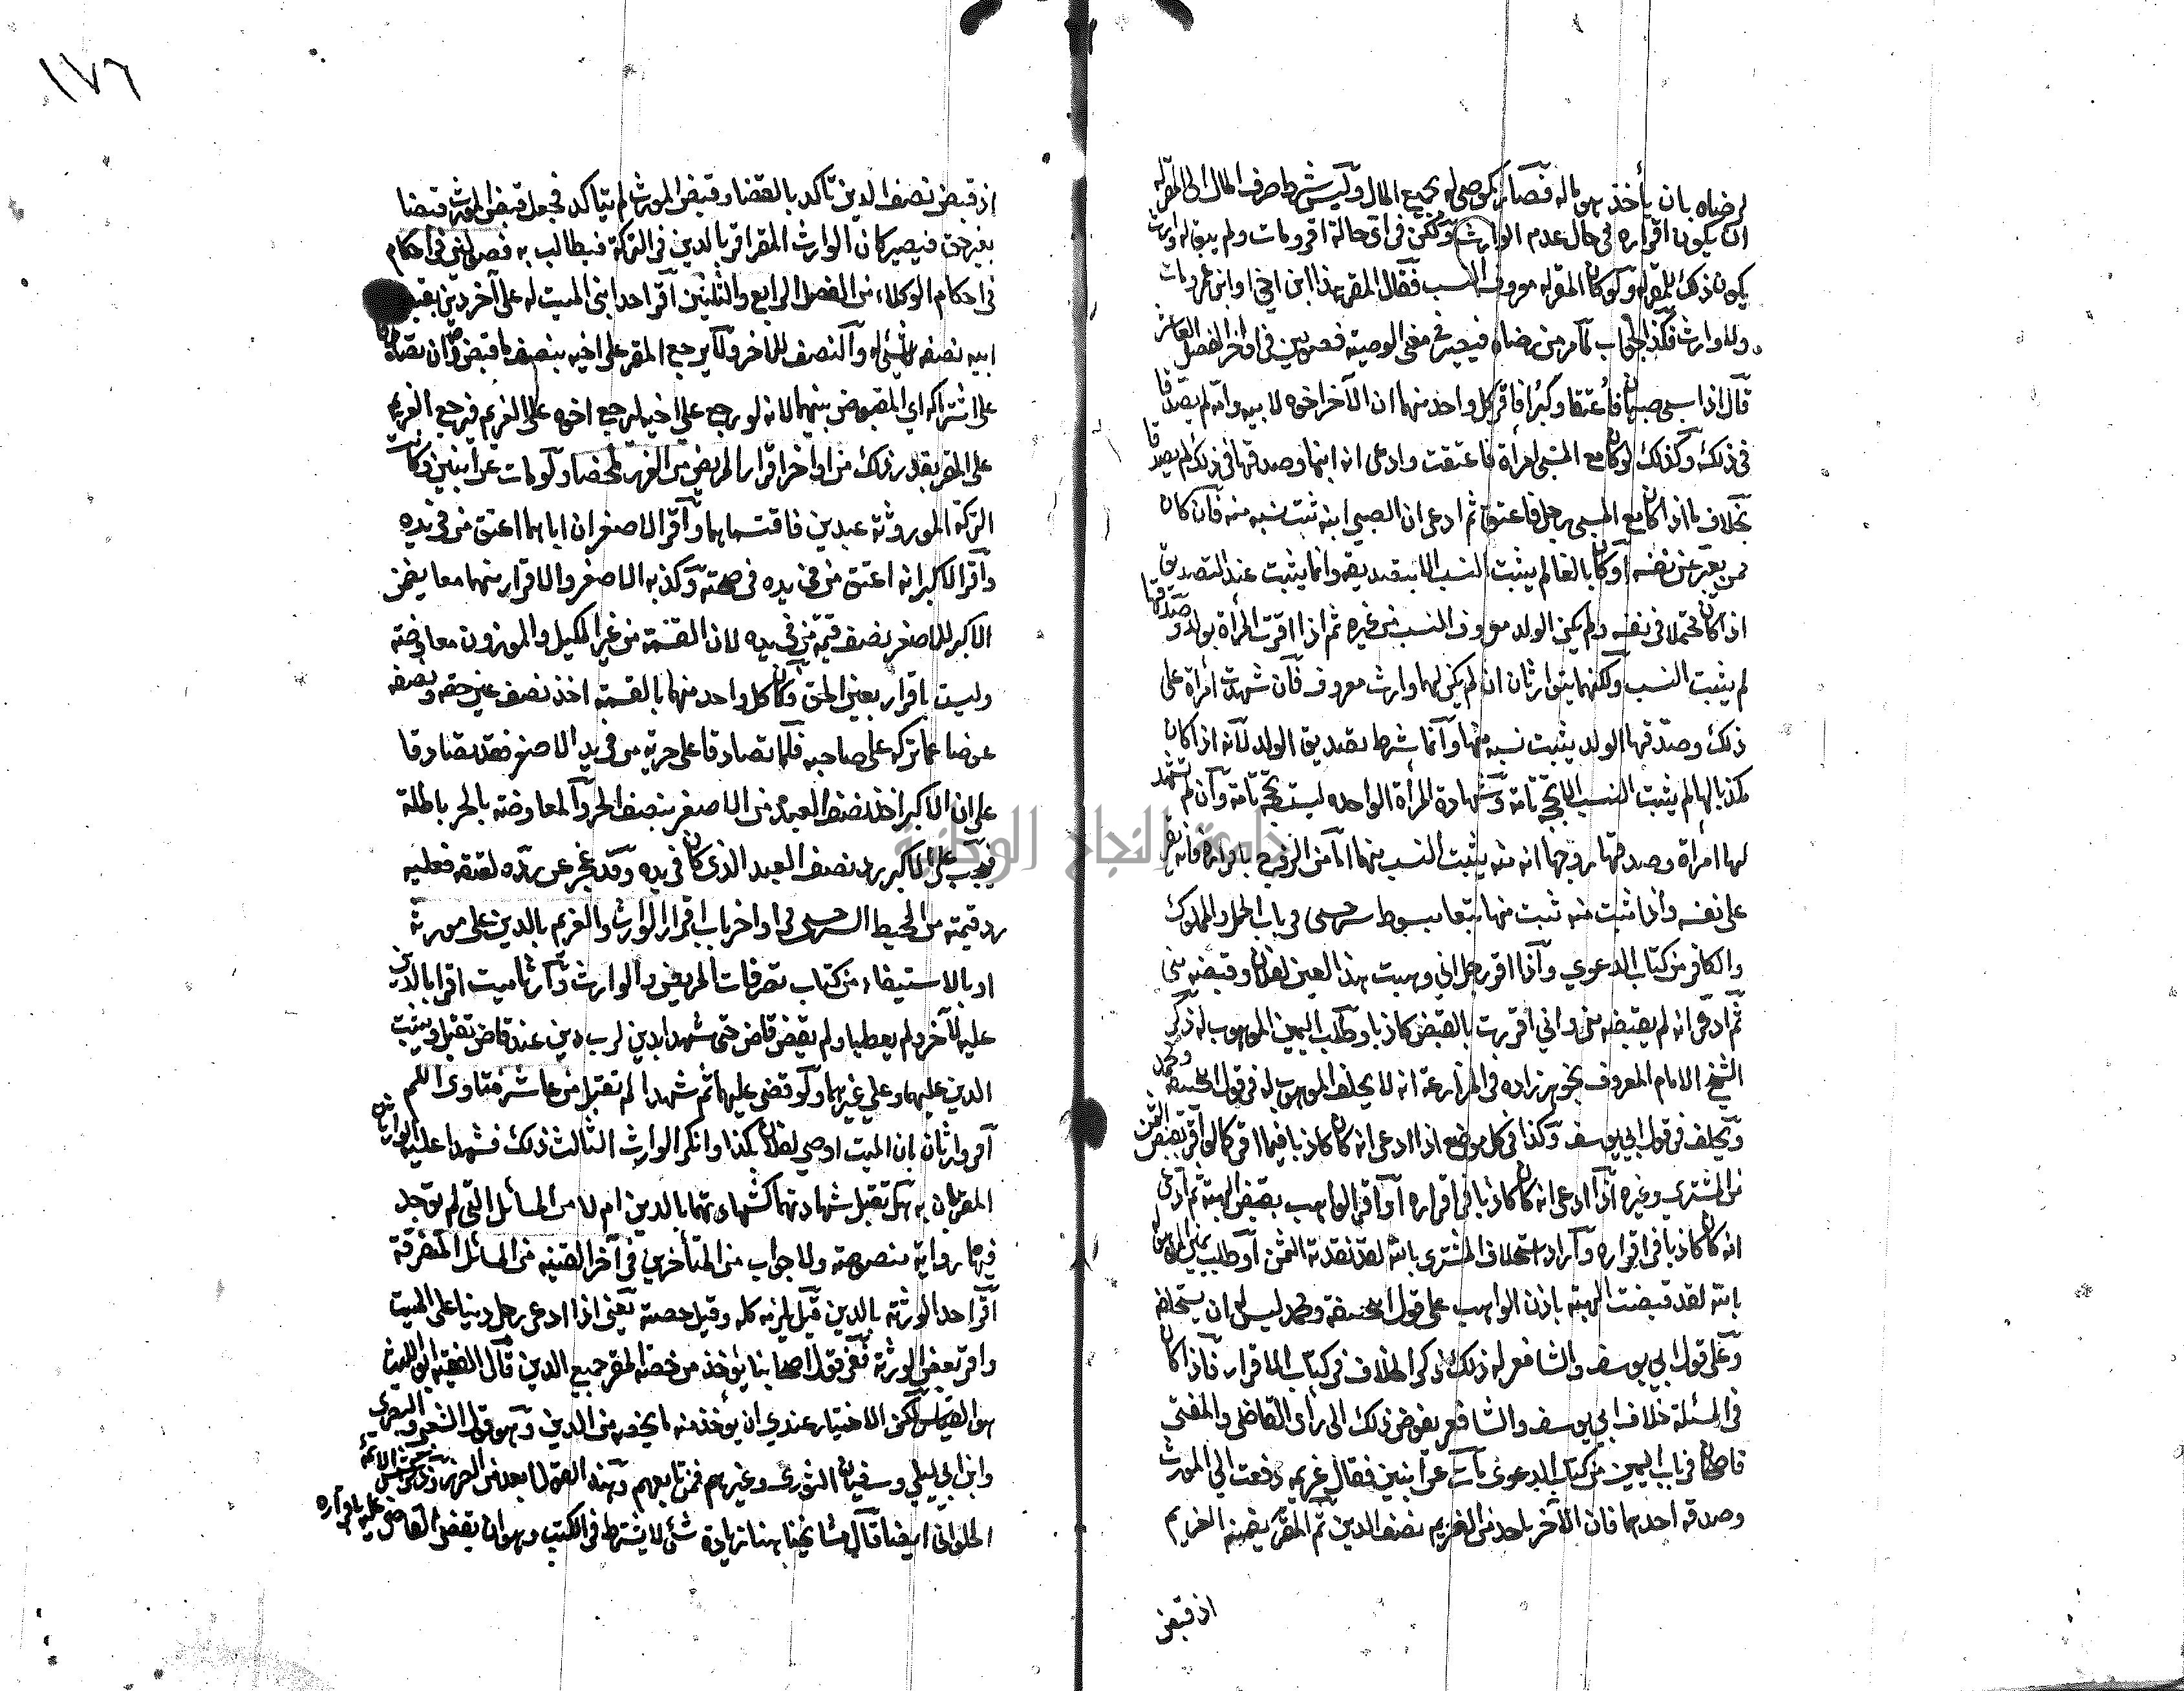 لرضاه بان يأخذ هو ماله فصار كموصى له بجميع المال وليس شرط صرف المال الى المقر له
ان يكون اقراره في حال عدم الوارث ولكن في اي حالة اقر ومات ولم يبق له وارث
يكون ذلك للمقر له ولو كان المقر له معروف النسب فقال المقر هذا ابن اخي او ابن عم ومات
ولا وارث فكذا الجواب لما مر من رضاه فيصير في معنى الوصية فصولين في اواخر الفصل العاشر
قال اذا سبي صبيان فاعتقا وكبرا فاقر كل واحد منهما ان الآخر اخوه لابيه وامه لم يصدقا
في ذلك وكذلك لو كان مع المسبي امرأة فاعتقت وادعى انه ابنها وصدقها في ذلك لم يصدقا
بخلاف ما اذا كان مع المسبي رجل فاعتق ثم ادعى ان الصبي ابنه ثبت نسبه منه فان كان
ممن يعبر عن نفسه او كان بالغا لم يثبت النسب الا بتصديقه وانما يثبت عند التصديق
اذا كان محتملا في نفسه ولم يكن الولد معروف النسب من غيره ثم اذا اقرت المرأة بولد وصدقها
لم يثبت النسب ولكنهما يتوارثان ان لم يكن لهما وارث معروف فان شهدت امرأة على
ذلك وصدقها الولد يثبت نسبه منها وانما شرط تصديق الولد لانه اذا كان
مكذبا لها لم يثبت النسب الا بحجة تامة وشهادة المرأة الواحدة ليست بحجة تامة وان لم تشهد
لها امرأة وصدقها زوجها انه منه يثبت النسب منهما اما من الزوج باقراره فانه يقر
على نفسه واذا ثبت منه ثبت منها تبعا مبسوط سرخسي في باب الحمل والمملوك
والكافر من كتاب الدعوى واذا اقر رجل اني وهبت هذا العين لفلان وقبضه مني
ثم ادعى انه لم يقبضه مني واني اقررت بالقبض كاذبا وطلب اليمين الموهوب له ذكر
الشيخ الامام المعروف بخواهرزاده في المزارعة انه لا يحلف الموهوب له في قول ابي حنيفة ومحمد
ويحلف في قول ابي يوسف وكذا في كل موضع اذا ادعى انه كان كاذبا فيما اقر كما لو اقر بقبض الثمن
من المشتري وغيره اذا ادعى انه كان كاذبا في اقراره او اقر الواهب بقبض الهبة ثم ادعى
انه كان كاذبا في اقراره واراد استحلاف المشتري بالله لقد نقدته الثمن او طلب يمين الموهوب له
بالله لقد قبضت الهبة باذن الواهب على قول ابي حنيفة ومحمد ليس له ان يستحلفه
وعلى قول ابي يوسف والشافعي له ذلك ذكر الخلاف في كتاب الاقرار فاذا كان
في المسئلة خلاف ابي يوسف والشافعي يفوض ذلك الى رأي القاضي والمفتي
قاضيخان في باب اليمين من كتاب الدعوى مات عن ابنين فقال غريمه دفعت الى المورث
وصدقه احدهما فان الآخر ياخذ من الغريم نصف الدين ثم المقر يضمنه الغريم
اذ قبض
١٧٦
اذ قبض نصف الدين تاكد بالقضا وقبض المورث لم يتاكد فجعل قبض المورث قبضا
بغير حق فيصير كان الوارث المقر اقر بالدين في التركة فيطالب به فصولين في احكام
في احكام الوكلاء من الفصل الرابع والثلثين اقر احد ابني الميت له على آخر دين بقبض
ابيه نصفه لا شئ له والنصف للآخر ولا يرجع المقر على اخيه بنصف ما قبض وان تصادقا
على اشتراك اي المقبوض بينهما لانه لو رجع على اخيه ليرجع اخوه على الغريم فيرجع الغريم
على المقر بقدر ذلك من اواخر اقرار المريض من الغرر ملخصا ولو مات عن ابنين وكانت
التركة الموروثة عبدين فاقتسماهما واقر الاصغر ان اباهما اعتق من في يده
واقر الاكبر انه اعتق من في يده في صحته وكذبه الاصغر والاقرار منهما معا يضمن
الاكبر للاصغر نصف قيمة من في يده لان القسمة من غير المكيل والموزون معاوضة
وليست باقرار بعين الحق وكان كل واحد منهما بالقسمة اخذ نصف عين حقه ونصفه
عوضا عما تركه على صاحبه فلما تصادقا على حرية من في يد الاصغر فقد تصادقا
على ان الاكبر اخذ نصف العبد من الاصغر بنصف الحر والمعاوضة بالحر باطلة
فيجب على الاكبر رد نصف العبد الذي كان في يده وقد عجز عن رده لعتقه فعليه
رد قيمته من المحيط السرخسي في اواخر باب اقرار الوارث والغريم بالدين على مورثه
او بالاستيفاء من كتاب تصرفات المريض والوارث وارثا ميت اقرا بالدين
عليه لآخر ولم يعطيا ولم يقض قاض حتى شهدا بدين لرب دين عند قاض تقبل ويثبت
الدين عليهما وعلى غيرهما ولو قضى عليهما ثم شهدا لم تقبل من عاشر فتاوى
اقر وارثان بان الميت اوصى لفلان بكذا وانكر الوارث الثالث ذلك فشهدا عليه الوارثان
المقران به هل تقبل شهادتهما كشهادتهما بالدين ام لا من المسائل التي لم يوجد
فيها رواية منصوصة ولا جواب من المتأخرين في آخر القنية من المسائل المتفرقة
اقر احد الورثة بالدين قيل يلزمه كله وقيل حصته يعني اذا ادعى رجل دينا على الميت
واقر بعض الورثة ففي قول اصحابنا يؤخذ من حصة المقر جميع الدين قال الفقيه ابو الليث
هو القياس لكن الاختيار عندي ان يؤخذ منه ما يخصه من الدين وهو قول الشعبي والبصري
وابن ابي ليلى وسفيان الثوري وغيرهم فمن تابعهم وهذا القول ابعد من الضرر وذكر شمس الائمة
الحلواني ايضا قال مشايخنا هنا زيادة شئ لا يشترط في الكتب وهو ان يقضي القاضي عليه باقراره